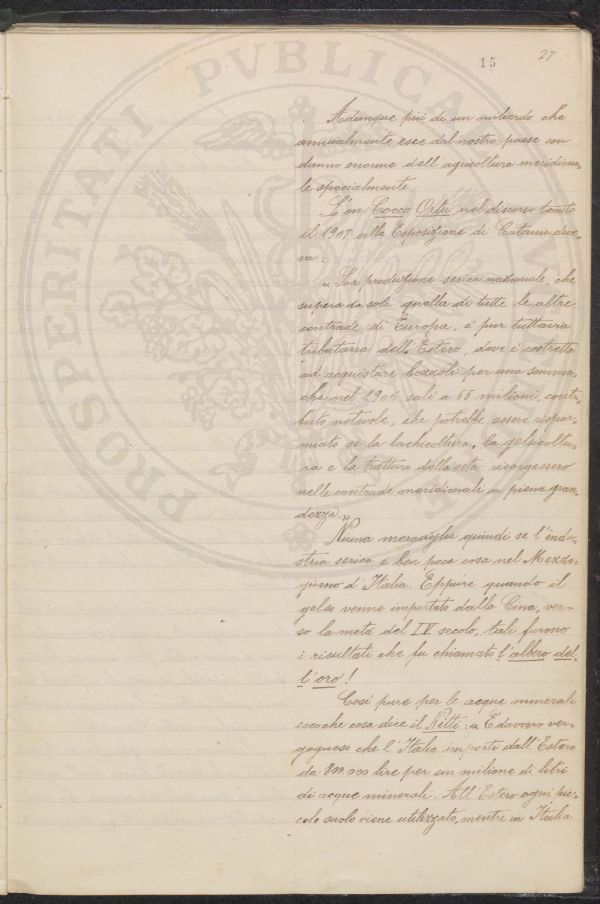 15
27
Adunque più di un miliardo che
annualmente esce dal nostro paese con
danno enorme dell'agricoltura meridiona-
le specialmente
L'on. Cocco Ortu, nel discorso tenuto
il 1907 alla Esposizione di Catania dice-
va:
"La produzione serica nazionale, che
supera da sola quella di tutte le altre
contrade di Europa, è pur tuttavia
tributaria dell'Estero, dove è costretta
ad acquistare bozzoli per una somma,
che nel 1906 salì a 65 milioni, contri-
buto notevole, che potrebbe essere rispar-
miato se la bachicoltura, la gelsicoltu-
ra e la trattura della seta risorgessero
nelle contrade meridionali a piena gran-
dezza."
Niuna meraviglia quindi se l'indu-
stria serica è ben poca cosa nel Mezzo-
giorno d'Italia. Eppure quando il
gelso venne importato dalla Cina, ver-
so la metà del IV secolo, tali furono
i risultati che fu chiamato l'albero del-
l'oro!
Così pure per le acque minerali
ecco che cosa dice il Nitti: "È davvero ver-
gognoso che l'Italia importi dall'Estero
da 800.000 lire per un milione di litri
di acque minerali. All'Estero ogni pic-
colo suolo viene utilizzato, mentre in Italia
PROSPERITATI PVBLICAE